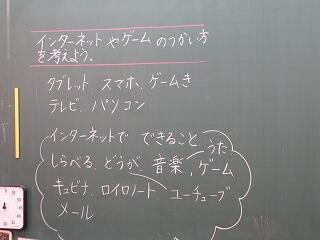 インターネットやゲームのつかい方
を考えよう。
タブレット、スマホ、ゲームき
テレビ、パソコン
インターネットで できること
しらべる、どうが、音楽、うた
ゲーム
キュビナ、ロイロノート、ユーチューブ
メール